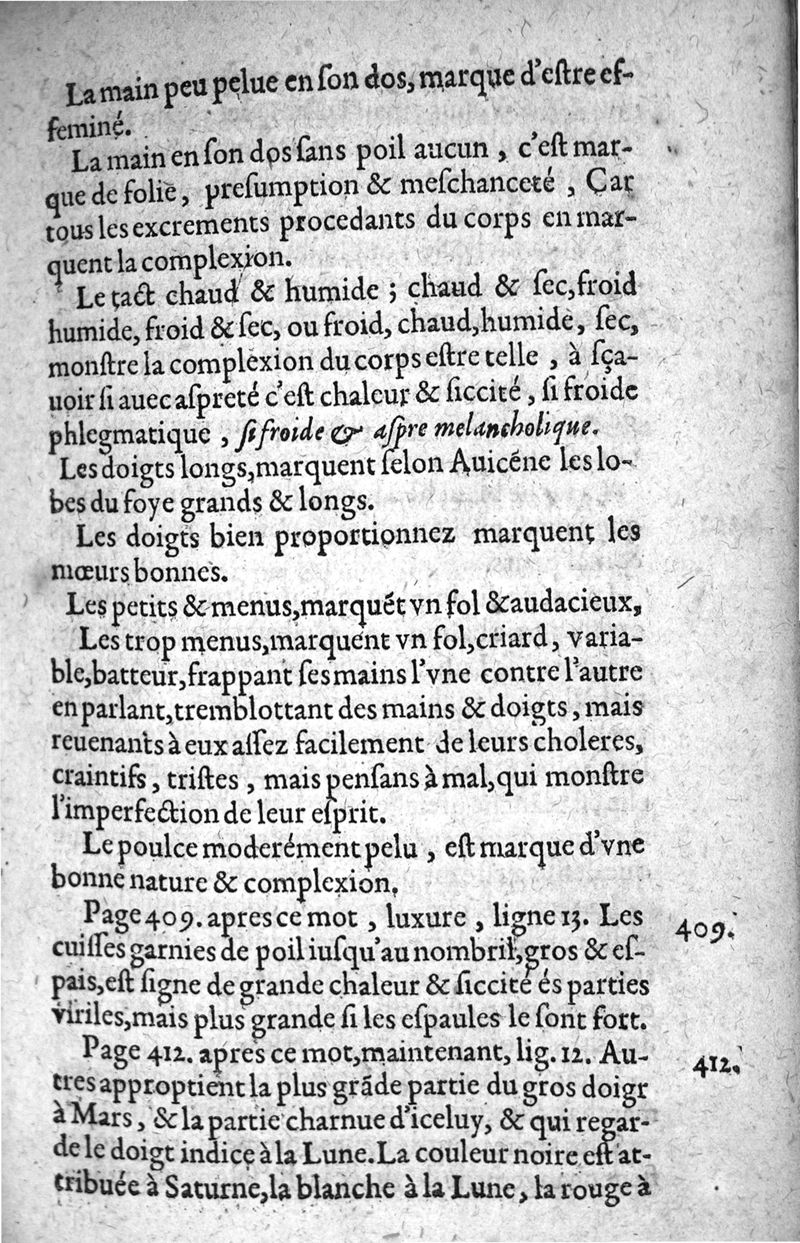 La main peu pelue en ſon dos, marque d'eſtre ef-
feminé.
La main en ſon dos ſans poil aucun , c'eſt mar-
que de folie, preſumption & meſchanceté , Car
tous les excrements procedants du corps en mar-
quent la complexion.
Le tact chaud & humide ; chaud & ſec, froid
humide, froid & ſec, ou froid, chaud, humide, ſec,
monſtre la complexion du corps eſtre telle , à ſça-
uoir ſi auec aſpreté c'eſt chaleur & ſiccité , ſi froide
phlegmatique , ſi froide & aſpre melancholique.
Les doigts longs, marquent ſelon Auicéne les lo-
bes du foye grands & longs.
Les doigts bien proportionnez marquent les
mœurs bonnes.
Les petits & menus, marquẽt vn fol & audacieux,
Les trop menus, marquent vn fol, criard, varia-
ble, batteur, frappant ſes mains l'vne contre l'autre
en parlant, tremblottant des mains & doigts, mais
reuenants à eux aſſez facilement de leurs choleres,
craintifs, triſtes , mais penſans à mal, qui monſtre
l'imperfection de leur eſprit.
Le poulce moderément pelu , eſt marque d'vne
bonne nature & complexion.
Page 409. apres ce mot , luxure , ligne 13. Les 409.
cuiſſes garnies de poil iuſqu'au nombril, gros & eſ-
pais, eſt ſigne de grande chaleur & ſiccité és parties
viriles, mais plus grande ſi les eſpaules le ſont fort.
Page 412. apres ce mot, maintenant, lig. 12. Au- 412.
tres approptient la plus grãde partie du gros doigr
à Mars, & la partie charnue d'iceluy, & qui regar-
de le doigt indice à la Lune. La couleur noire eſt at-
tribuée à Saturne, la blanche à la Lune, la rouge à